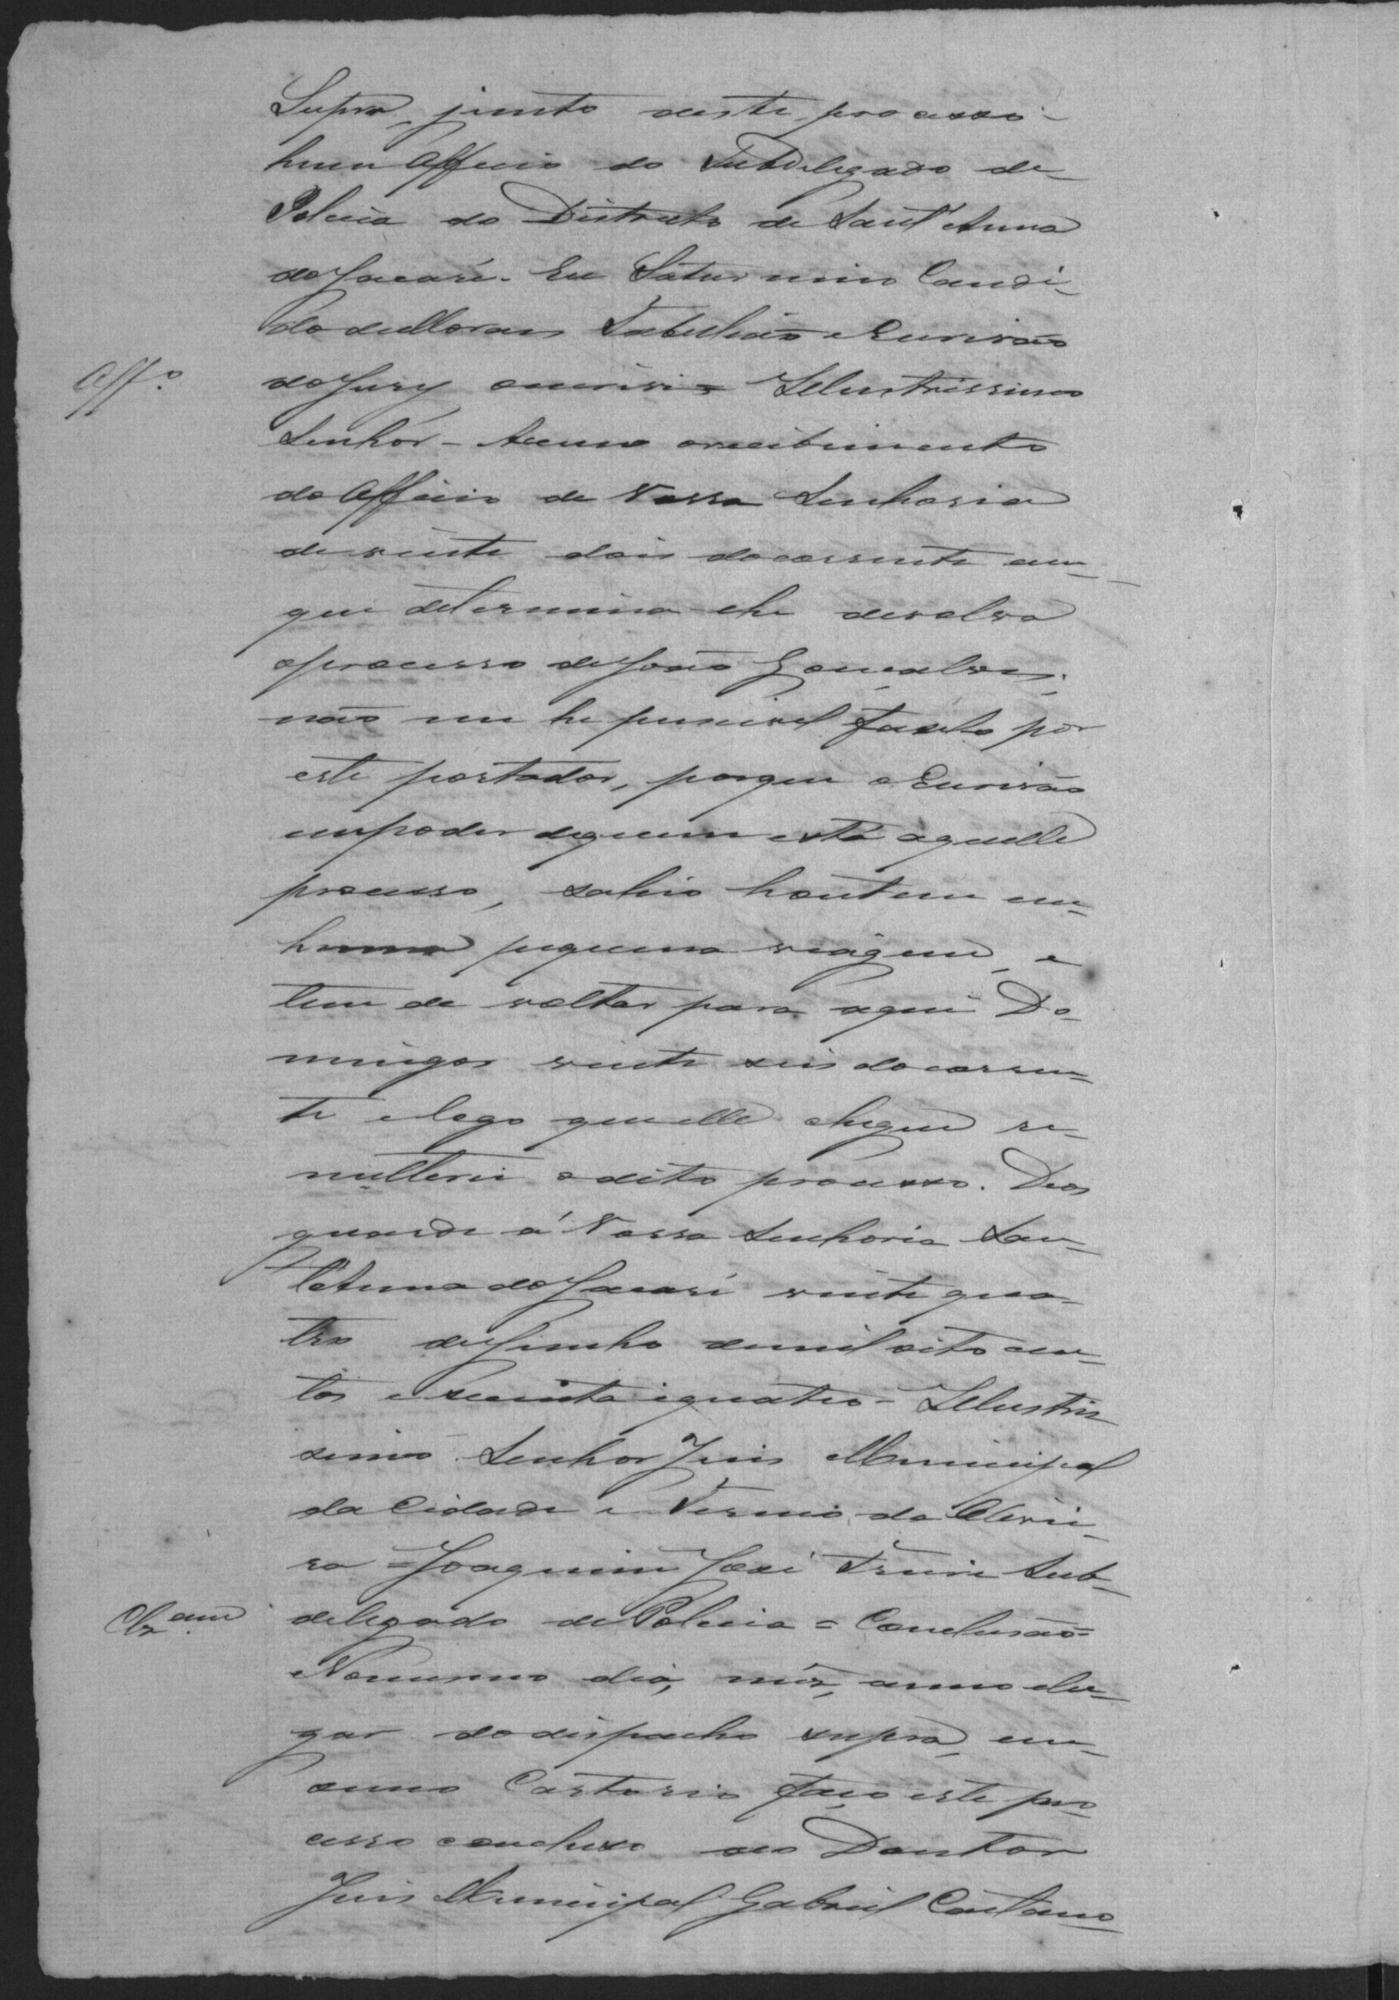 Supra, junto deste processo
hum Officio do Subdelegado de
Policia do Districto de Sant'Anna
do Jacaré. Eu Saturnino Candi-
do de Moraes Tabelião e Escrivão
Offº
do Jury escrivi = Illustrissimo
Senhor - Accuso o recibimento
do Officio de Vossa Senhoria
de vinte dois do corrente em
que determina lhe devolva
o processo de João Gonçalves;
não me he possivel fazelo por
este portador, porque o Escrivão
em poder de quem está aquelle
processo, sahio hontem em
huma pequena viagem, e
tem de voltar para aqui Do-
mingo vinte seis do corren-
te e logo que elle chegue re-
metterei o dito processo. Deos
guarde á Vossa Senhoria San-
t'Anna do Jacaré vinte qua-
tro de Junho de mil oito cen-
tos e setenta e quatro - Illustris
simo Senhor Juis Municipal
da Cidade e Termo da Olivei-
ra = Joaquim José Freire Sub-
Clzam
delegado de Policia = Conclusão =
No mesmo dia, mês, anno e lu-
gar do despacho supra, em
meu Cartorio faço este pro
cesso concluso ao Doutor
Juis Municipal Gabriel Caetano